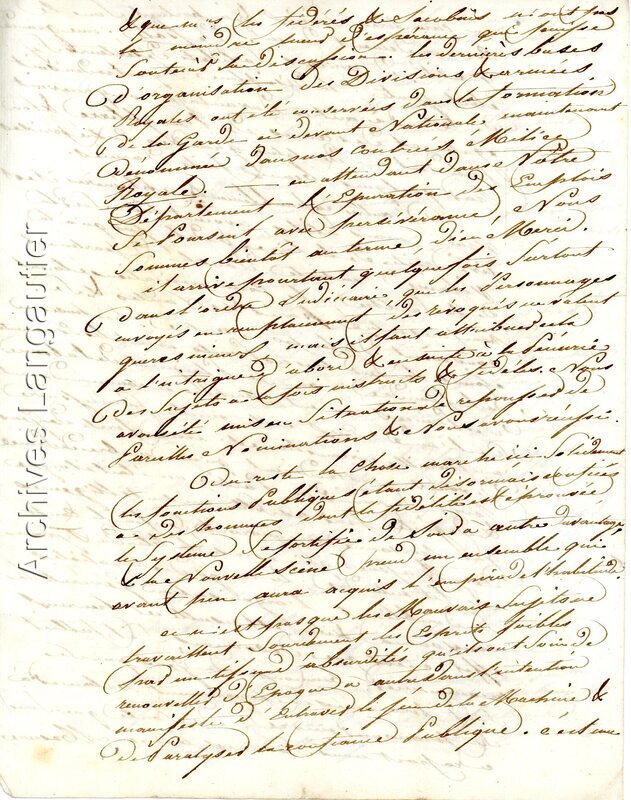 & que nous les fédérés & Jacobins n'ont pas
la moindre lueur d'espérance qui puisse
Soutenir la discussion. les dernières bases
d'organisation des Divisions & armées
Royales ont été conservées dans la formation
de la Garde ci devant Nationale maintenant
Dénommée dans nos contrées, Milice
Royale. en attendant dans Notre
Département l'Epuration des Emplois
Se Poursuit avec persévérance, Nous
Sommes bientôt au terme, dieu Merci.
il arrive pourtant quelquefois Surtout
dans l'ordre Judiciaire, que les Personnages
envoyés en remplacement des révoqués ne valent
guères mieux, mais il faut attribuer cela
à l'intrigue d'abord & ensuite à la Penurie
des Sujets à la fois instruits & fidèles. Nous
avons été mis en Situation de repousser de
Pareilles Nominations & Nous avons réussi.
Du reste la chose marche ici Solidement
les fonctions Publiques étant désormais confiées
à des hommes dont la fidélité est éprouvée
le Système se fortifie de Jour à autre davantage,
& la Nouvelle scène prend un ensemble qui
avant peu aura acquis l'empire de l'habitude.
ce n'est pas que les Mauvais Sujets ne
travaillent Sourdement les Esprits foibles
par un tissu d'absurdités qu'ils ont Soin de
renouveller d'Epoque à autre dans l'intention
manifeste d'Entraver le jeu de la Machine &
de Paralyser la confiance Publique. c'est une
Archives Langautier